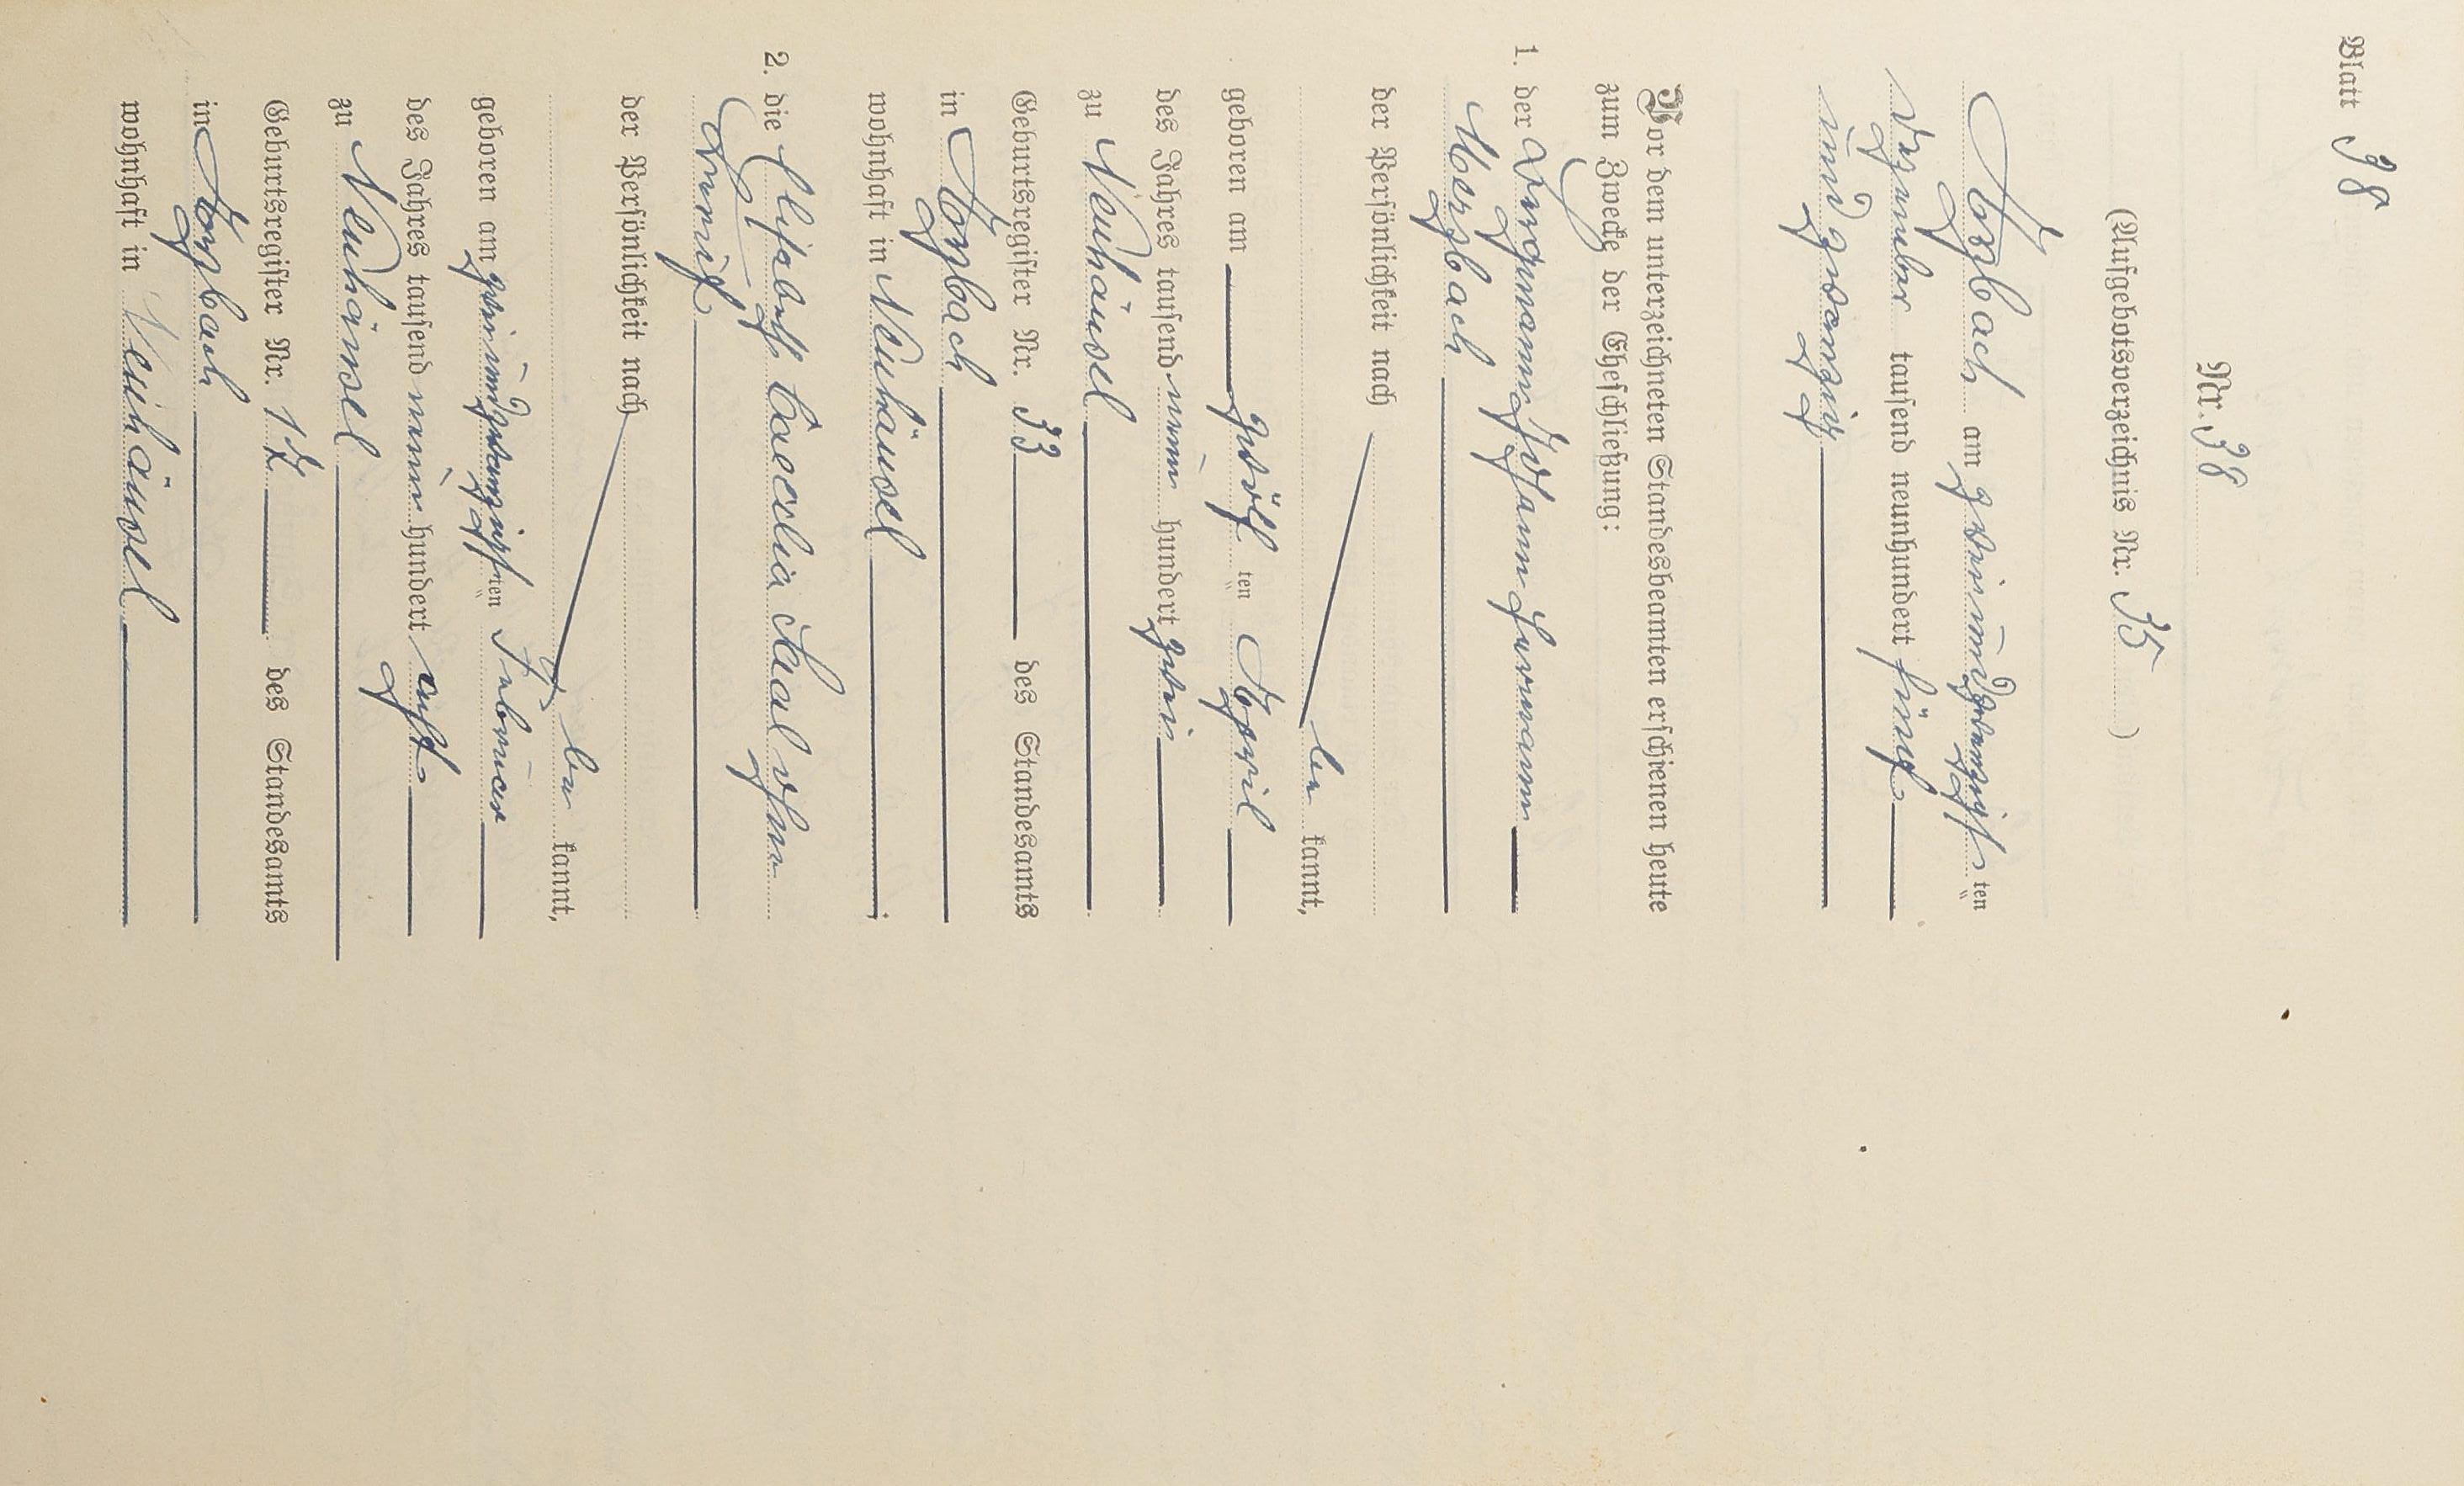 Blatt 38
Nr. 38
(Aufgebotsverzeichnis Nr. 35)
Arzbach am zweiundzwanzigsten ten
Dezember tausend neunhundert fünf
und zwanzig
Vor dem unterzeichneten Standesbeamten erschienen heute
zum Zwecke der Eheschließung:
1. der Bergmann Johann Hermann
Merzbach
der Persönlichkeit nach
be kannt,
geboren am zwölf ten April
des Jahres tausend neun hundert zwei
zu Neuhäusel
Geburtsregister Nr. 33 des Standesamts
in Arzbach
wohnhaft in Neuhäusel
2. die Elisabeth Caecilia Saal ohne
Beruf
der Persönlichkeit nach
be kannt,
geboren am zweiundzwanzigsten ten Februar
des Jahres tausend neun hundert acht
zu Neuhäusel
Geburtsregister Nr. 17 des Standesamts
in Arzbach
wohnhaft in Neuhäusel